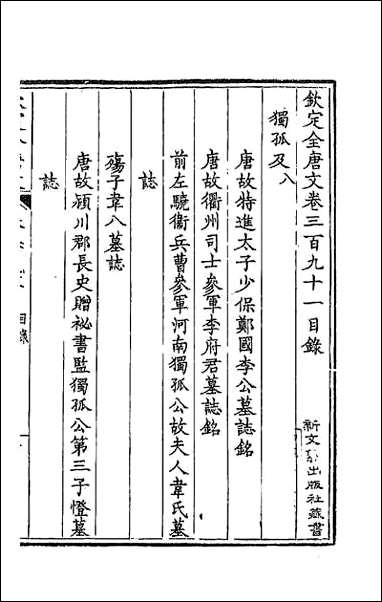 欽定全唐文卷三百九十一目錄
新文豐出版社藏書
獨孤及八
唐故特進太子少保鄭國李公墓誌銘
唐故衢州司士參軍李府君墓誌銘
前左驍衞兵曹參軍河南獨孤公故夫人韋氏墓
誌
殤子韋八墓誌
唐故潁川郡長史贈祕書監獨孤公第三子憕墓
誌
目錄